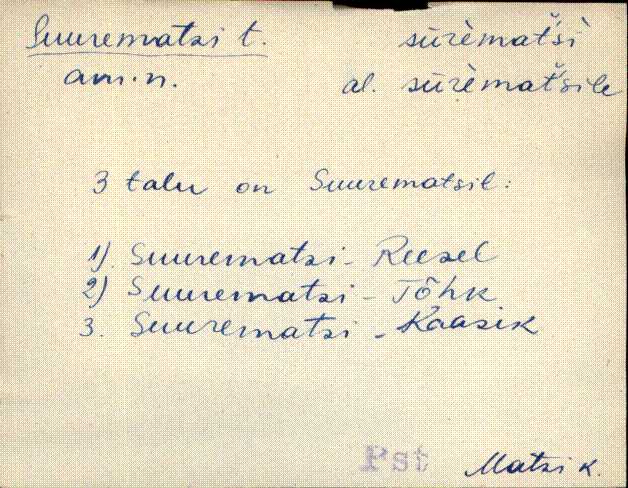 Suurematsi t. sūrèmať͔śi
am.n. al. sūrèmať͔śile
3 talu on Suurematsil:
1) Suurematsi - Reesel
2) Suurematsi - Tõhk
3. Suurematsi - Kaasik
Pst Matsi k.